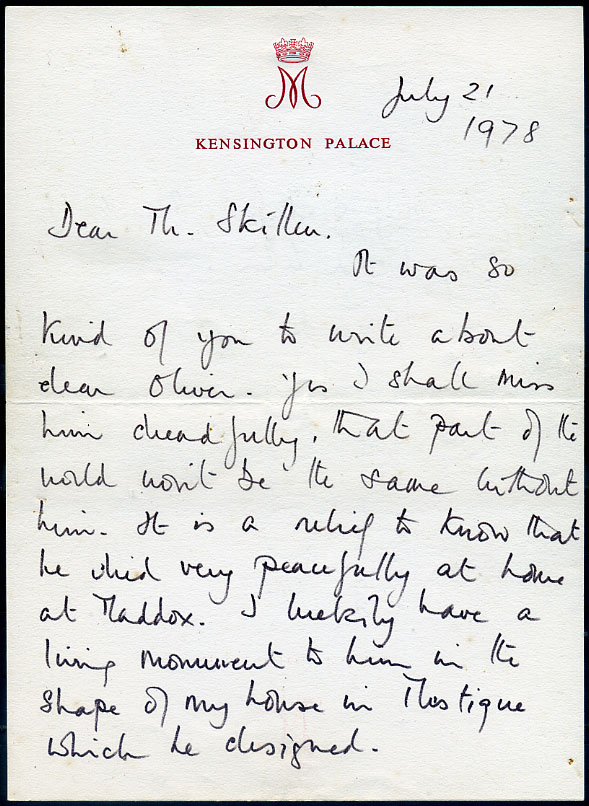 M
July 21
1978
KENSINGTON PALACE
Dear Mr. Skillen.
It was so
kind of you to write about
dear Oliver. Yes I shall miss
him dreadfully, that part of the
world won't be the same without
him. It is a relief to know that
he died very peacefully at home
at Maddox. I luckily have a
living monument to him in the
shape of my house in Mustique
which he designed.